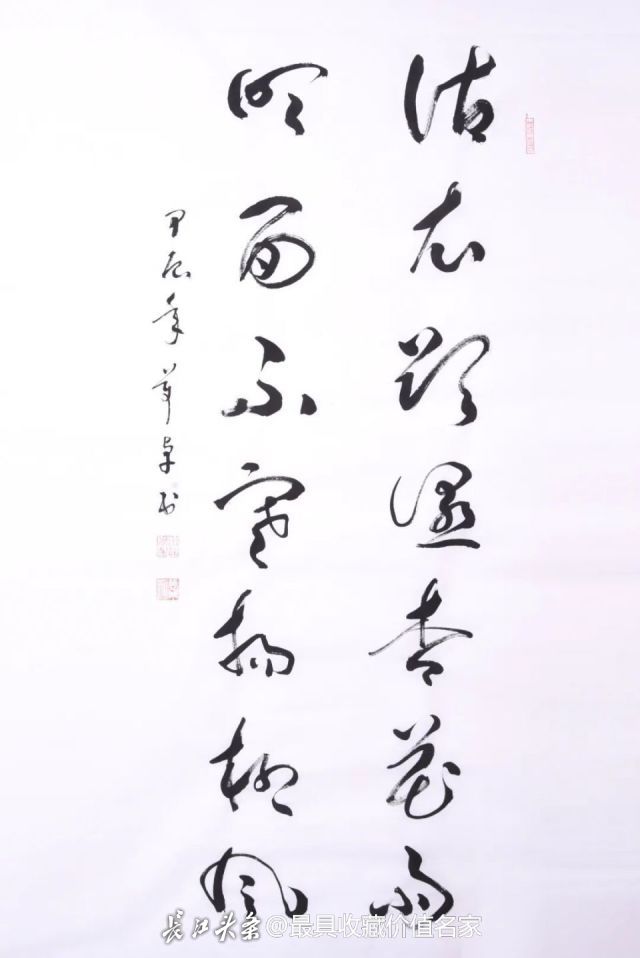 沾衣欲湿杏花雨
吹面不寒杨柳风
甲辰年
书
长江头条 @最具收藏价值名家